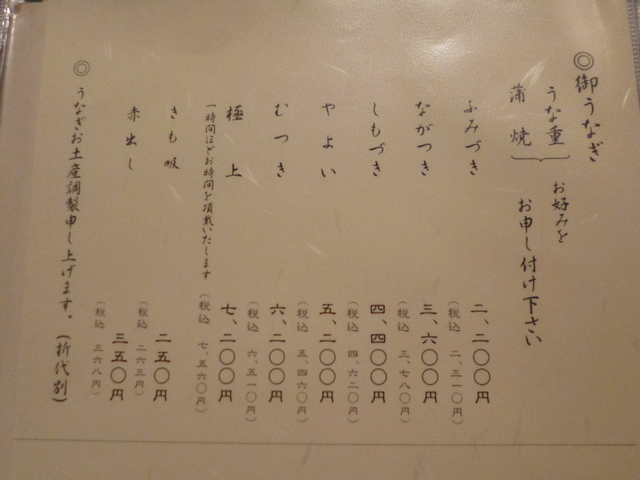 ◎御うなぎ
うな重
蒲焼
お好みを
お申し付け下さい
ふみづき 二、二〇〇円
(税込 二、三一〇円)
ながつき 三、六〇〇円
(税込 三、七八〇円)
しもづき 四、四〇〇円
(税込 四、六二〇円)
やよい 五、二〇〇円
(税込 五、四六〇円)
むつき 六、二〇〇円
(税込 六、五一〇円)
極上 七、二〇〇円
一時間ほどお時間を頂戴いたします
(税込 七、五六〇円)
きも吸 二五〇円
(税込 二六三円)
赤出し 三五〇円
(税込 三六八円)
◎うなぎお土産調製申し上げます。(折代別)